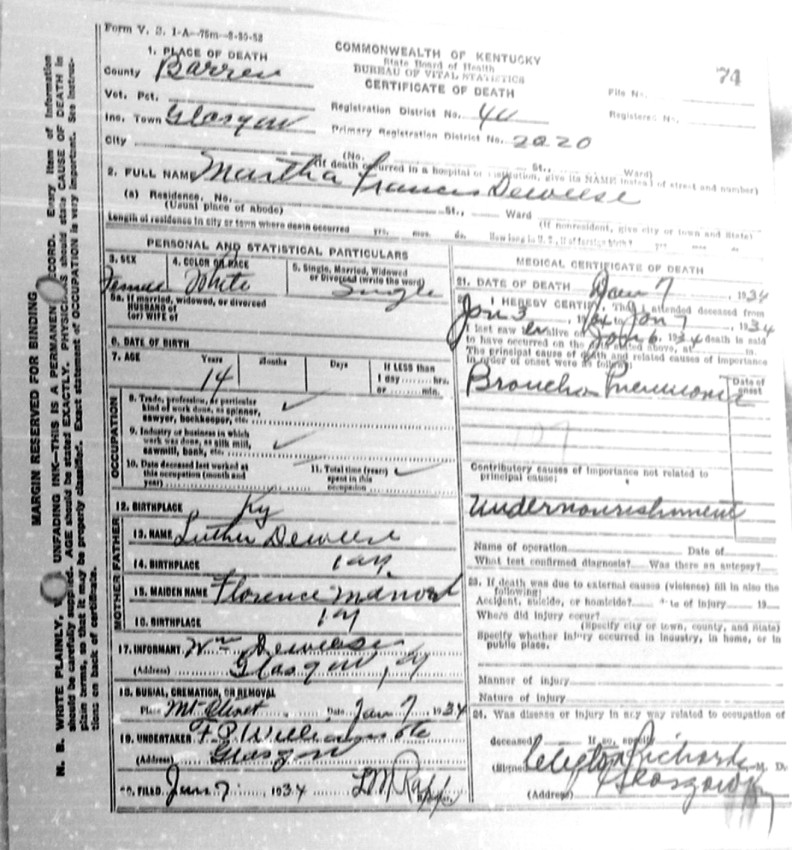 Form V. S. 1-A—75m—8-30-32
COMMONWEALTH OF KENTUCKY
State Board of Health
BUREAU OF VITAL STATISTICS
CERTIFICATE OF DEATH
74
1. PLACE OF DEATH
County Barren
File No.
Vot. Pct.
Registration District No. 40
Registered No.
Inc. Town Glasgow
Primary Registration District No. 2020
City
(No. St., Ward)
(If death occurred in a hospital or institution, give its NAME instead of street and number)
2. FULL NAME Martha Francis Deweese
(a) Residence. No. St., Ward
(Usual place of abode) (If nonresident, give city or town and State)
Length of residence in city or town where death occurred yrs. mos. ds. How long in U. S., if of foreign birth? yrs. mos. ds.
PERSONAL AND STATISTICAL PARTICULARS
3. SEX Female
4. COLOR OR RACE White
5. Single, Married, Widowed or Divorced (write the word) Single
5a. If married, widowed, or divorced
HUSBAND of
(or) WIFE of
6. DATE OF BIRTH
7. AGE Years Months Days If LESS than
1 day hrs.
or min.
14
OCCUPATION
8. Trade, profession, or particular
kind of work done, as spinner,
sawyer, bookkeeper, etc.
9. Industry or business in which
work was done, as silk mill,
sawmill, bank, etc.
10. Date deceased last worked at
this occupation (month and
year)
11. Total time (years)
spent in this
occupation
12. BIRTHPLACE Ky
FATHER
13. NAME Luther Deweese
14. BIRTHPLACE Ky
MOTHER
15. MAIDEN NAME Florence
16. BIRTHPLACE Ky
17. INFORMANT Wm Deweese
(Address) Glasgow, Ky
18. BURIAL, CREMATION, OR REMOVAL
Place Mt Olivet Date Jan 7 1934
19. UNDERTAKER F. P. Williams
(Address) Glasgow
20. FILED Jan 7 1934
Registrar
MEDICAL CERTIFICATE OF DEATH
21. DATE OF DEATH Jan 7, 1934
22. I HEREBY CERTIFY, That I attended deceased from
Jan 3, to Jan 7, 1934
I last saw alive on Jan 6, 1934 death is said
to have occurred on the date stated above, at m.
The principal cause of death and related causes of importance
in order of onset were as follows:
Date of onset
Broncho Pneumonia
Contributory causes of importance not related to
principal cause:
Undernourishment
Name of operation Date of
What test confirmed diagnosis? Was there an autopsy?
23. If death was due to external causes (violence) fill in also the
following:
Accident, suicide, or homicide? Date of injury 19
Where did injury occur?
(Specify city or town, county, and State)
Specify whether injury occurred in industry, in home, or in
public place.
Manner of injury
Nature of injury
24. Was disease or injury in any way related to occupation of
deceased If so, specify
(Signed) M. D.
(Address) Glasgow Ky
MARGIN RESERVED FOR BINDING
N. B. WRITE PLAINLY, UNFADING INK—THIS IS A PERMANENT RECORD. Every item of information
should be carefully supplied. AGE should be stated EXACTLY. PHYSICIANS should state CAUSE OF DEATH in
plain terms, so that it may be properly classified. Exact statement of OCCUPATION is very important. See instruc-
tions on back of certificate.